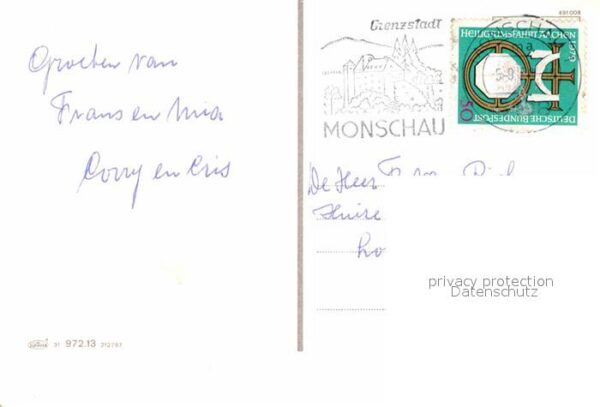 Groeten van
Frans en Mia
Corry en Cris
691008
Grenzstadt
MONSCHAU
HEILIGTUMSFAHRT AACHEN 1979
DEUTSCHE BUNDESPOST
50
De Heer
privacy protection
Datenschutz
31 972.13 212787